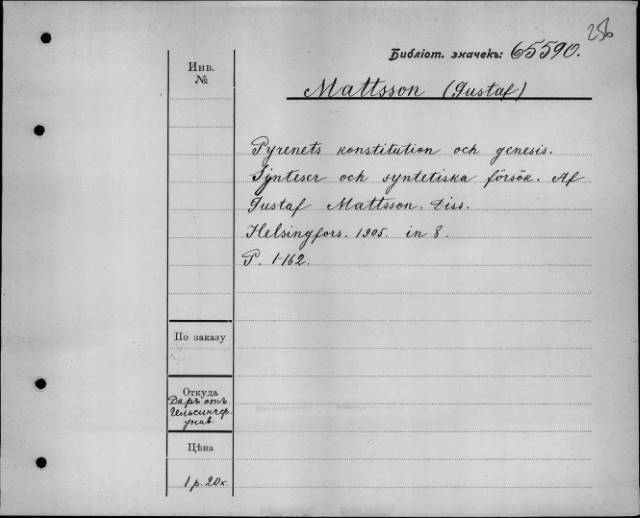 256
Библіот. значекъ: 65590.
Инв.
№
Mattsson (Gustaf)
Pyrenets konstitution och genesis.
Synteser och syntetiska försök. Af
Gustaf Mattsson. Diss.
Helsingfors. 1905. in 8.
P. 1-162.
По заказу
Откуда
Даръ отъ
Гельсингф.
унив.
Цѣна
1 р. 20 к.